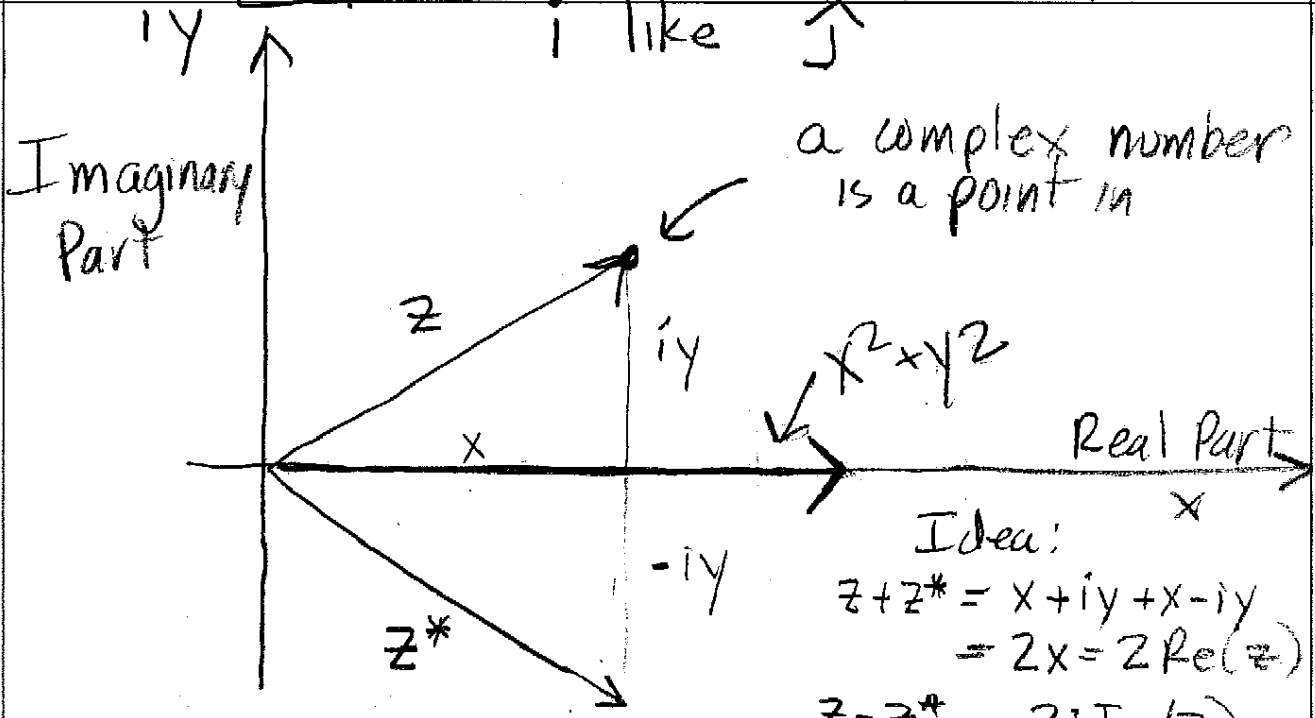 iy
i like
Imaginary
Part
a complex number
is a point in
z
iy
x²+y²
x
Real Part
x
-iy
z*
Idea:
z+z* = x+iy+x-iy
= 2x = 2 Re(z)
z-z*